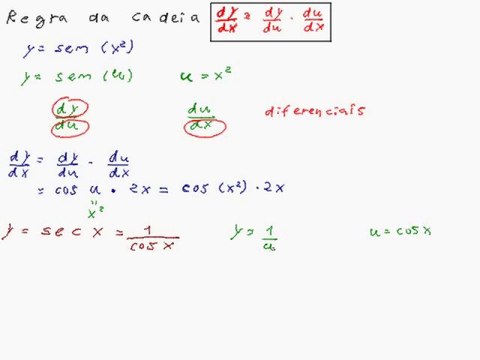 Regra da cadeia dy/dx = dy/du · du/dx
y = sem (x²)
y = sem (u) u = x²
dy/du du/dx diferenciais
dy/dx = dy/du · du/dx
= cos u · 2x = cos (x²) · 2x
"
x²
y = sec x = 1/cos x y = 1/u u = cos x